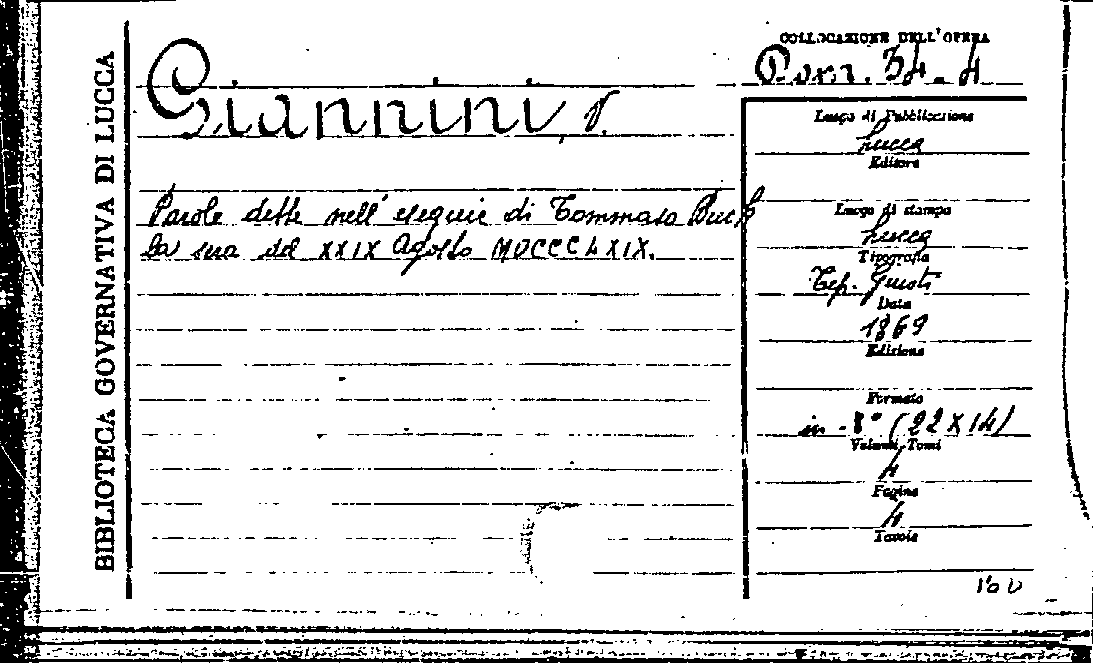 BIBLIOTECA GOVERNATIVA DI LUCCA
COLLOCAZIONE DELL'OPERA
34-4
Giannini,
Parole dette nell'esequie di Tommaso
la sera del XXIX Agosto MDCCCLXIX.
Luogo di Pubblicazione
Lucca
Editore
Luogo di stampa
Lucca
Tipografia
Tip. Giusti
Data
1869
Edizione
Formato
in-8° (22x14)
Volumi, Tomi
Pagine
4
Tavole